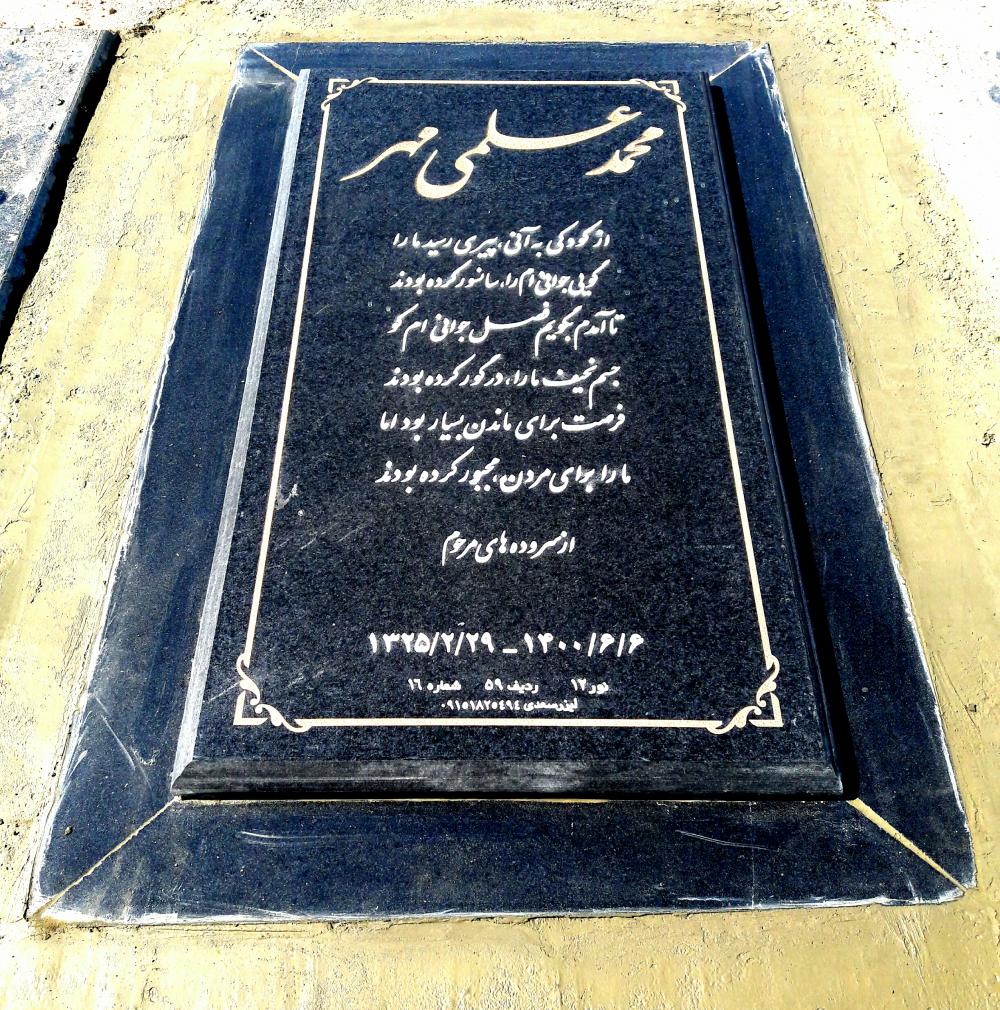 محمد علمی مهر
از کودکی به آنی، پیری رسید ما را
گویی جوانی ام را، سانسور کرده بودند
تا آمدم بگویم فصل جوانی ام کو
جسم نحیف ما را، در گور کرده بودند
فرصت برای ماندن بسیار بود اما
ما را برای مردن، مجبور کرده بودند
از سروده های مرحوم
۱۳۲۵/۲/۲۹ - ۱۴۰۰/۶/۶
نور ۱۲ ردیف ۵۹ شماره ۱۶
لیزر سعدی ۰۹۱۵۱۸۲۵۴۹۴